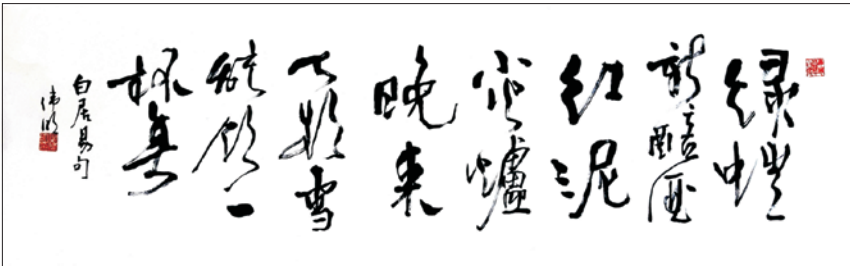 绿螘
新醅酒
红泥
小火爐
晚来
天欲雪
能饮一
杯無
白居易句